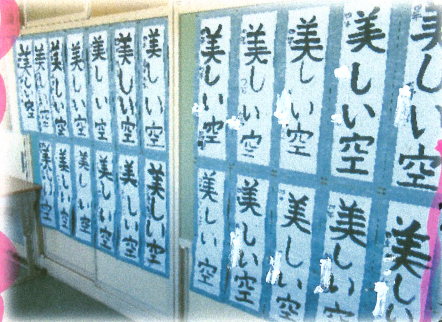 美しい空
美しい空
美しい空
美しい空
美しい空
美しい空
美しい空
美しい空
美しい空
美しい空
美しい空
美しい空
美しい空
美しい空
美しい空
美しい空
美しい空
美しい空
美しい空
美しい空
美しい空
美しい空
美しい